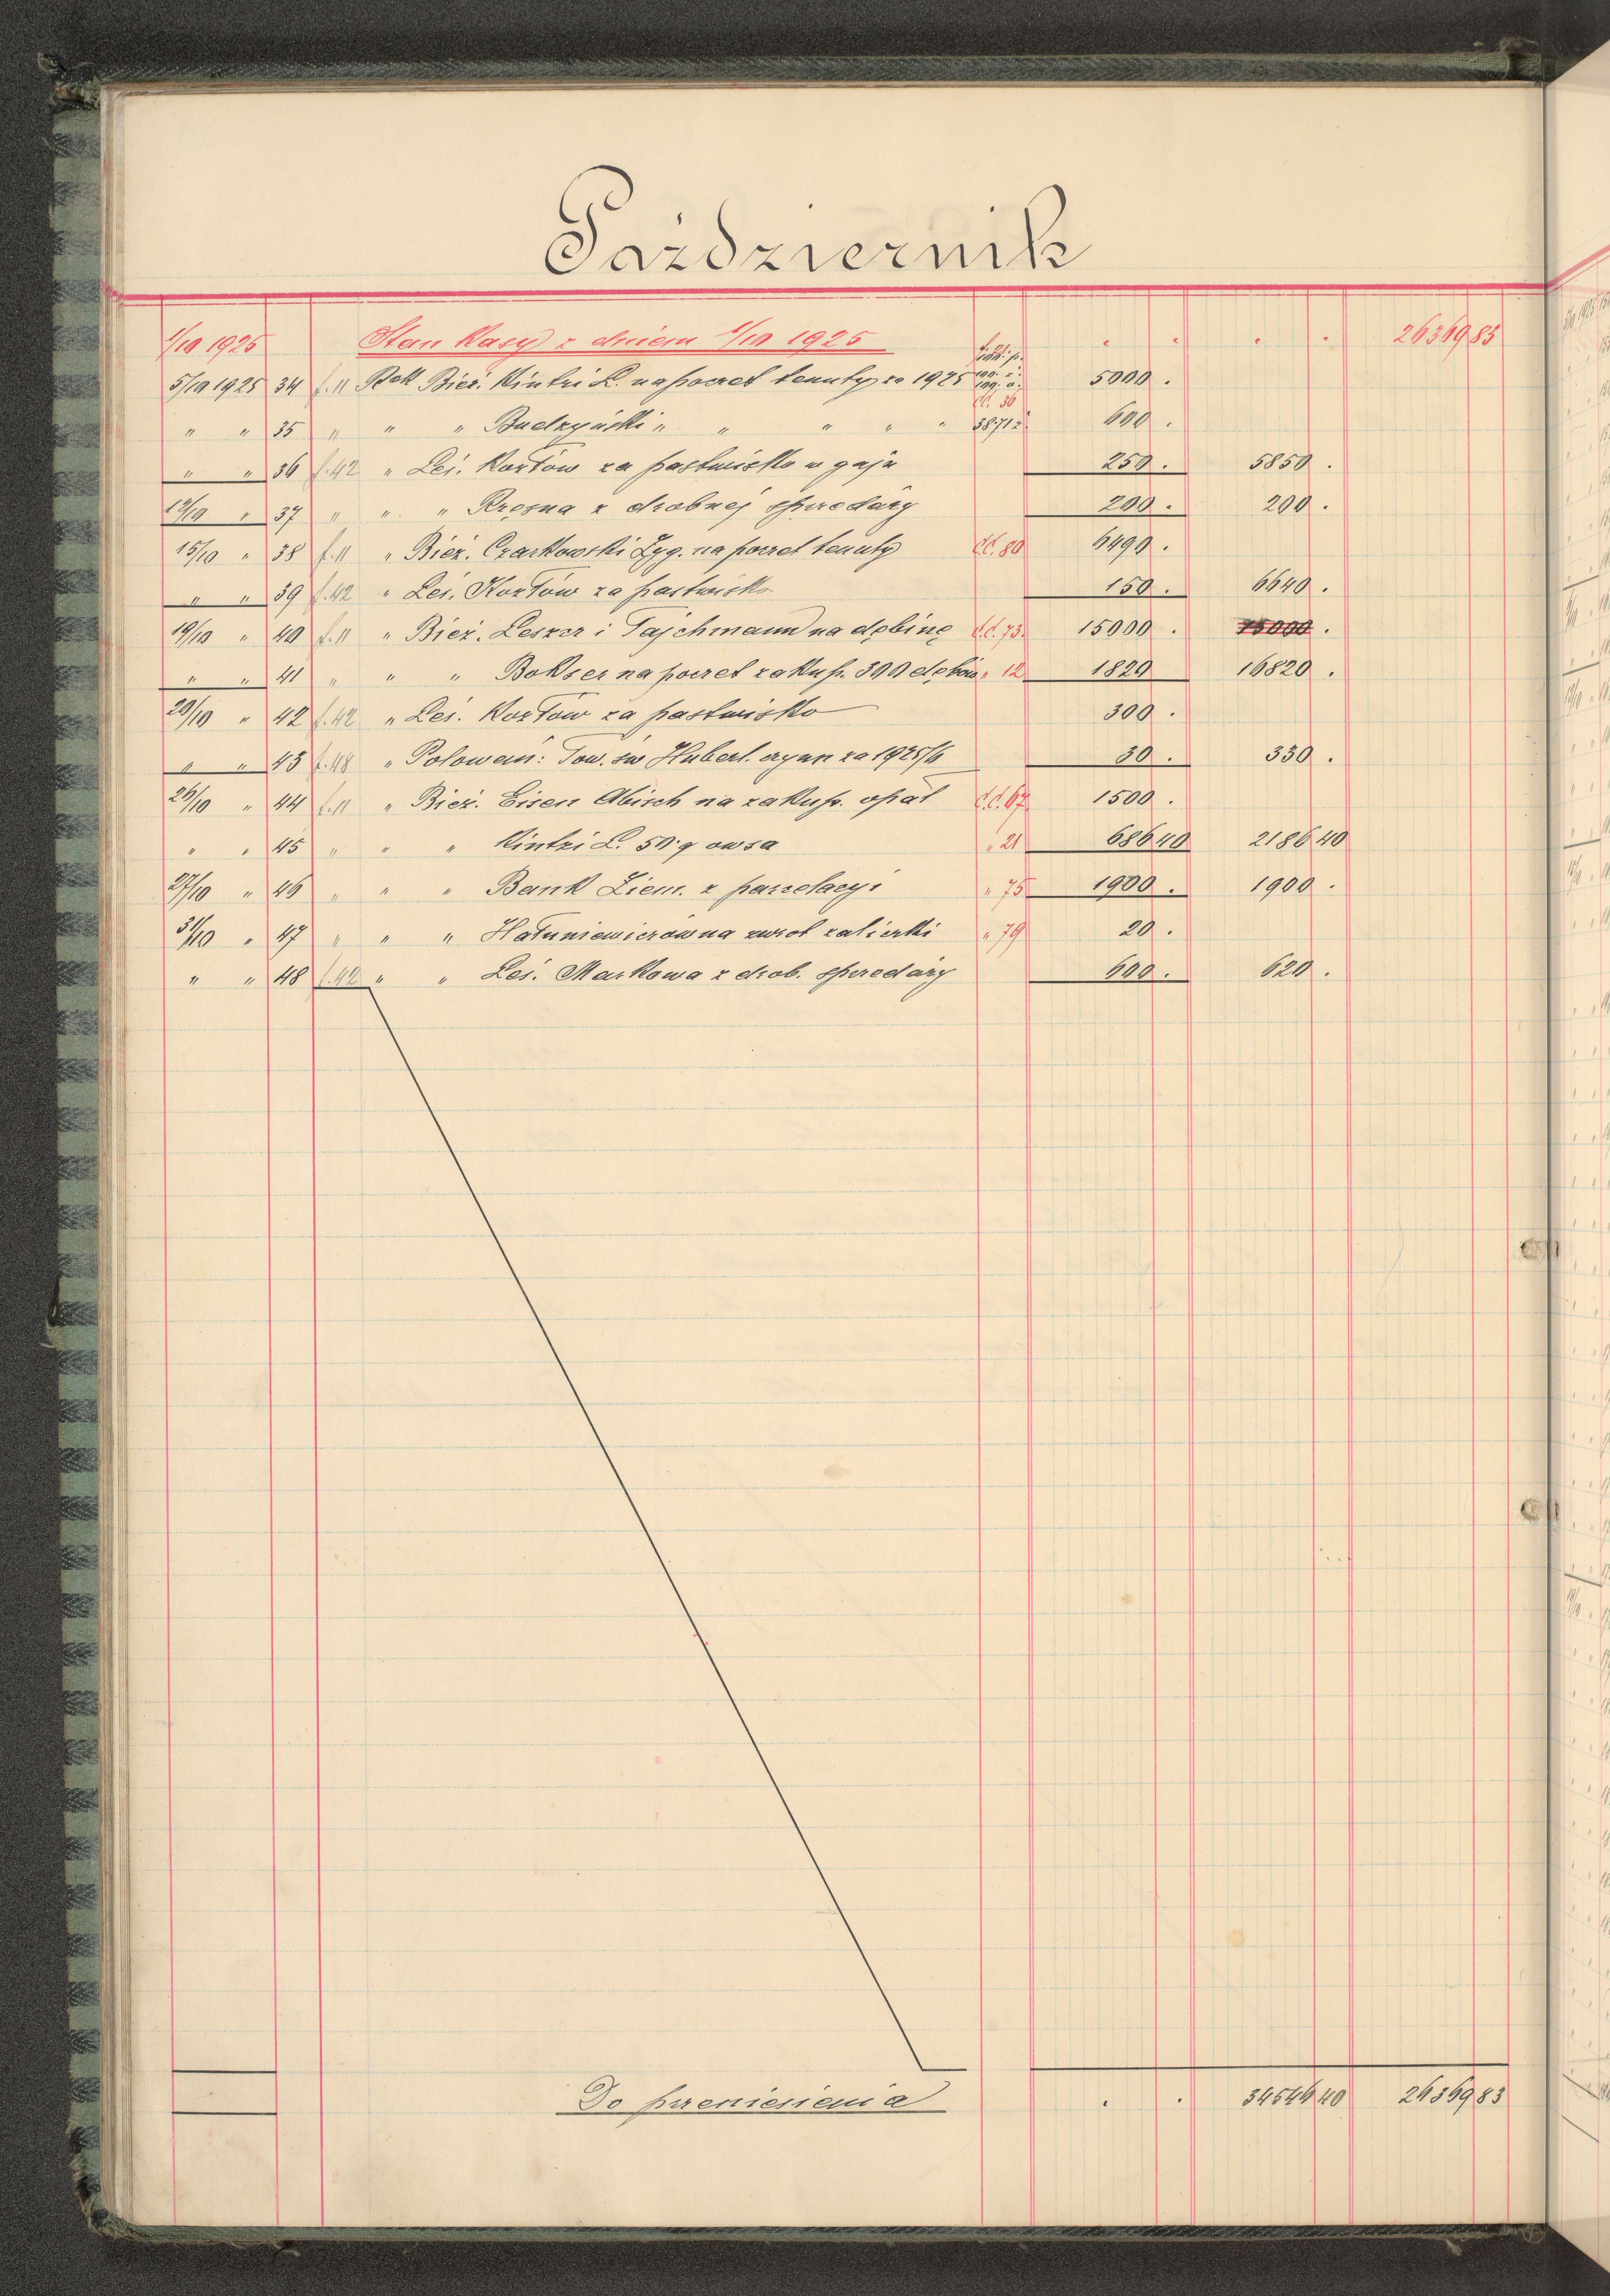 Październik
1/10 1925 Stan Kasy z dniem 1/10 1925 . . . . 26369 83
5/10 1925 34 f. 11 Rek Bież. Kintzi L. na poczet tenuty za 1925 5000 .
" " 35 " " " Budzyński " " " " " 3871 600 .
" " 36 f. 42 " Leś. Kortów za pastwisko w gaju 250 . 5850 .
12/10 " 37 " " " Kręzna z drobnej sprzedaży 200 . 200 .
15/10 " 38 f. 11 " Bież. Czarkowski Zyg. na poczet tenuty Cd. 80 6490 .
" " 39 f. 42 " Leś. Kortów za pastwisko 150 . 6640 .
19/10 " 40 f. 11 " Bież. Leszcz i Tajchmann na dębinę Cd. 73. 15000 . 15000 .
" " 41 " " " Bokser na poczet zakup. 300 dębów " 12 1820 16820 .
20/10 " 42 f. 42 " Leś. Kortów za pastwisko 300 .
" " 43 f. 48 " Polowań: Tow. św Hubert. czyn za 1925/6 30 . 330 .
26/10 " 44 f. 11 " Bież. Eisen Abisch na zakup. opał Cd. 67 1500 .
" " 45 " " " Kintzi L. 50 q owsa " 21 686 40 2186 40
27/10 " 46 " " " Bank Ziem. z parcelacyi " 75 1900 . 1900 .
31/10 " 47 " " " Hatuniewiczówna zwrot zaliczki " 79 20 .
" " 48 f. 42 " " Leś. Markowa z drob. sprzedaży 600 . 620 .
Do przeniesienia . . 34546 40 26369 83